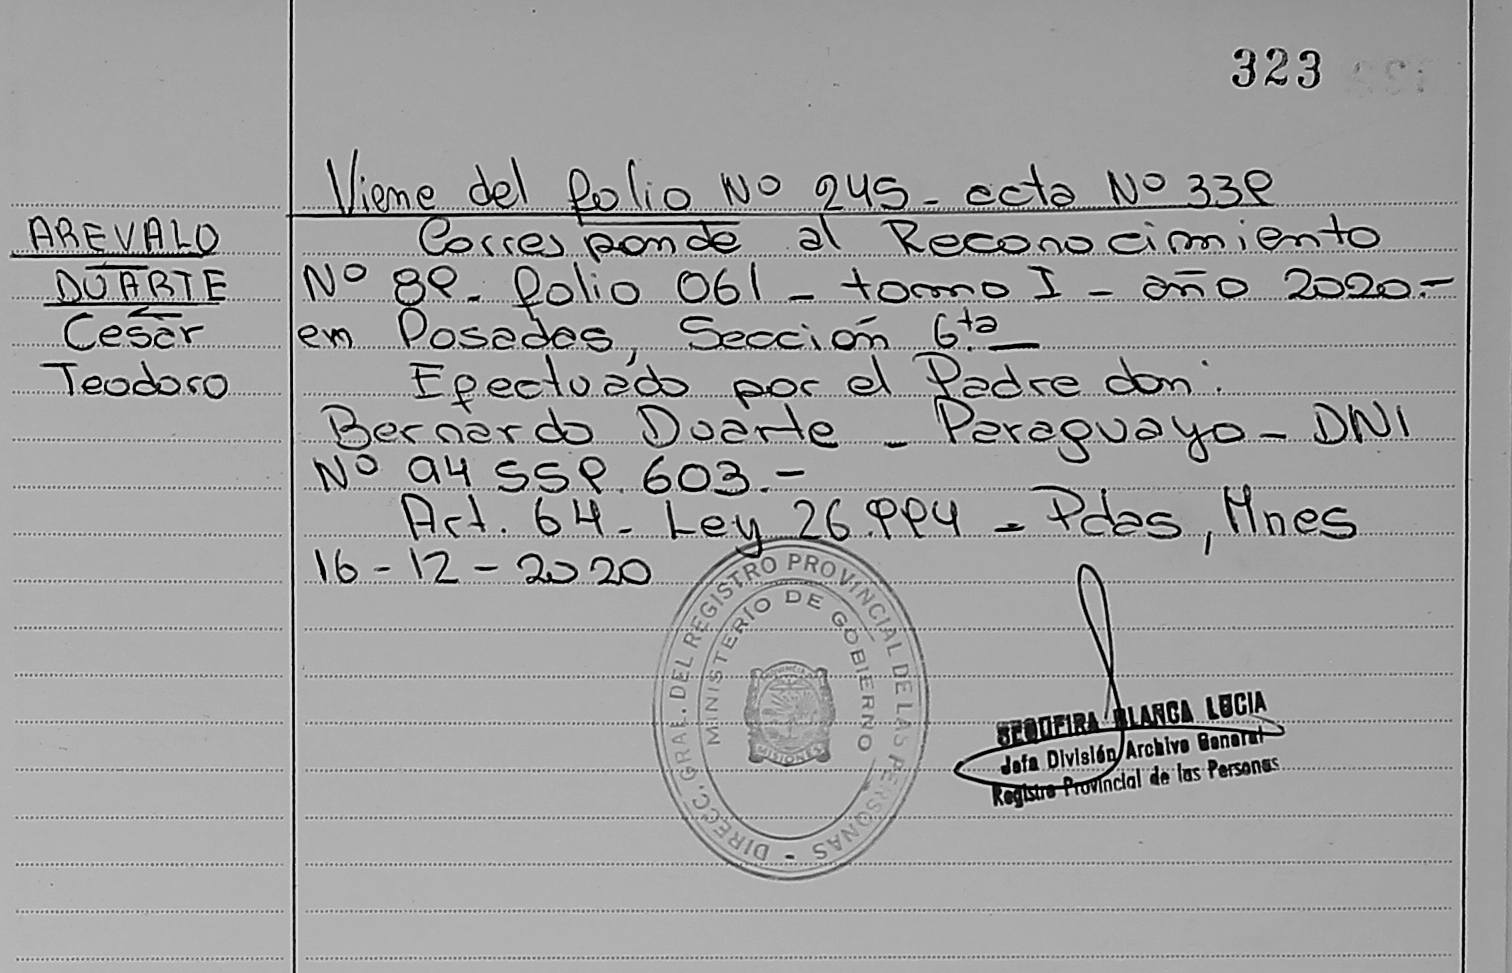 323
Viene del folio Nº 245 - acta Nº 339
AREVALO
DUARTE
Cesar
Teodoro
Corresponde al Reconocimiento
Nº 89 - folio 061 - tomo I - año 2020.-
en Posadas, Sección 6ta. -
Efectuado por el Padre don:
Bernardo Duarte - Paraguayo - DNI
Nº 94 559 603.-
Art. 64 - Ley 26.994 - Pdas, Mnes
16-12-2020
DIRECC. GRAL. DEL REGISTRO PROVINCIAL DE LAS PERSONAS -
MINISTERIO DE GOBIERNO
MISIONES
SEQUEIRA BLANCA LUCIA
Jefa División Archivo General
Registro Provincial de las Personas